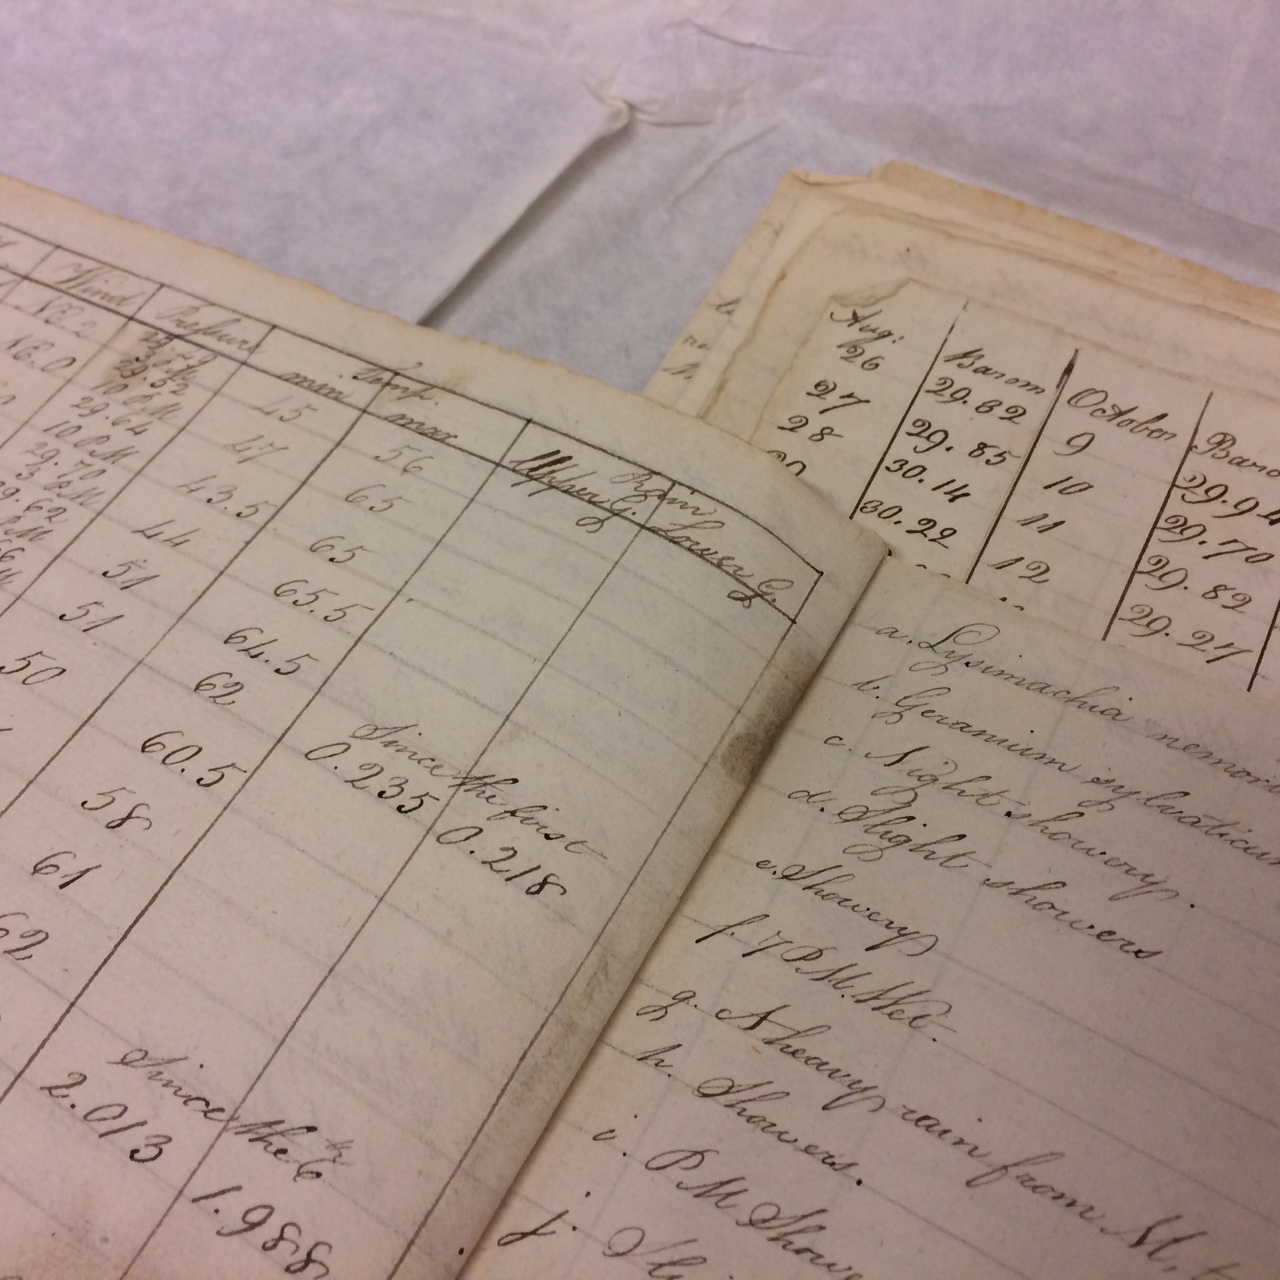 Wind Pressure Temp. Rain
min max Upper G. Lower G.
NE.O
10 PM
29.64
10 PM
29.70
3 PM
29.62
45 56
47 65
43.5 65
44 65.5
51 64.5
51 62
50 60.5
58
61
62
Since the first
0.235 0.218
Since the 6th
2.013 1.988
Aug: Barom October Baro
26 29.82 9 29.94
27 29.85 10 29.70
28 30.14 11 29.82
30.22 12 29.27
a. Lysimachia nemoru
b. Geranium sylvaticum
c. Night showery.
d. Slight showers
e. Showery
f. 7 P.M. Wet.
g. A heavy rain from M,
h. Showers.
i. P M Showe
j. Sli